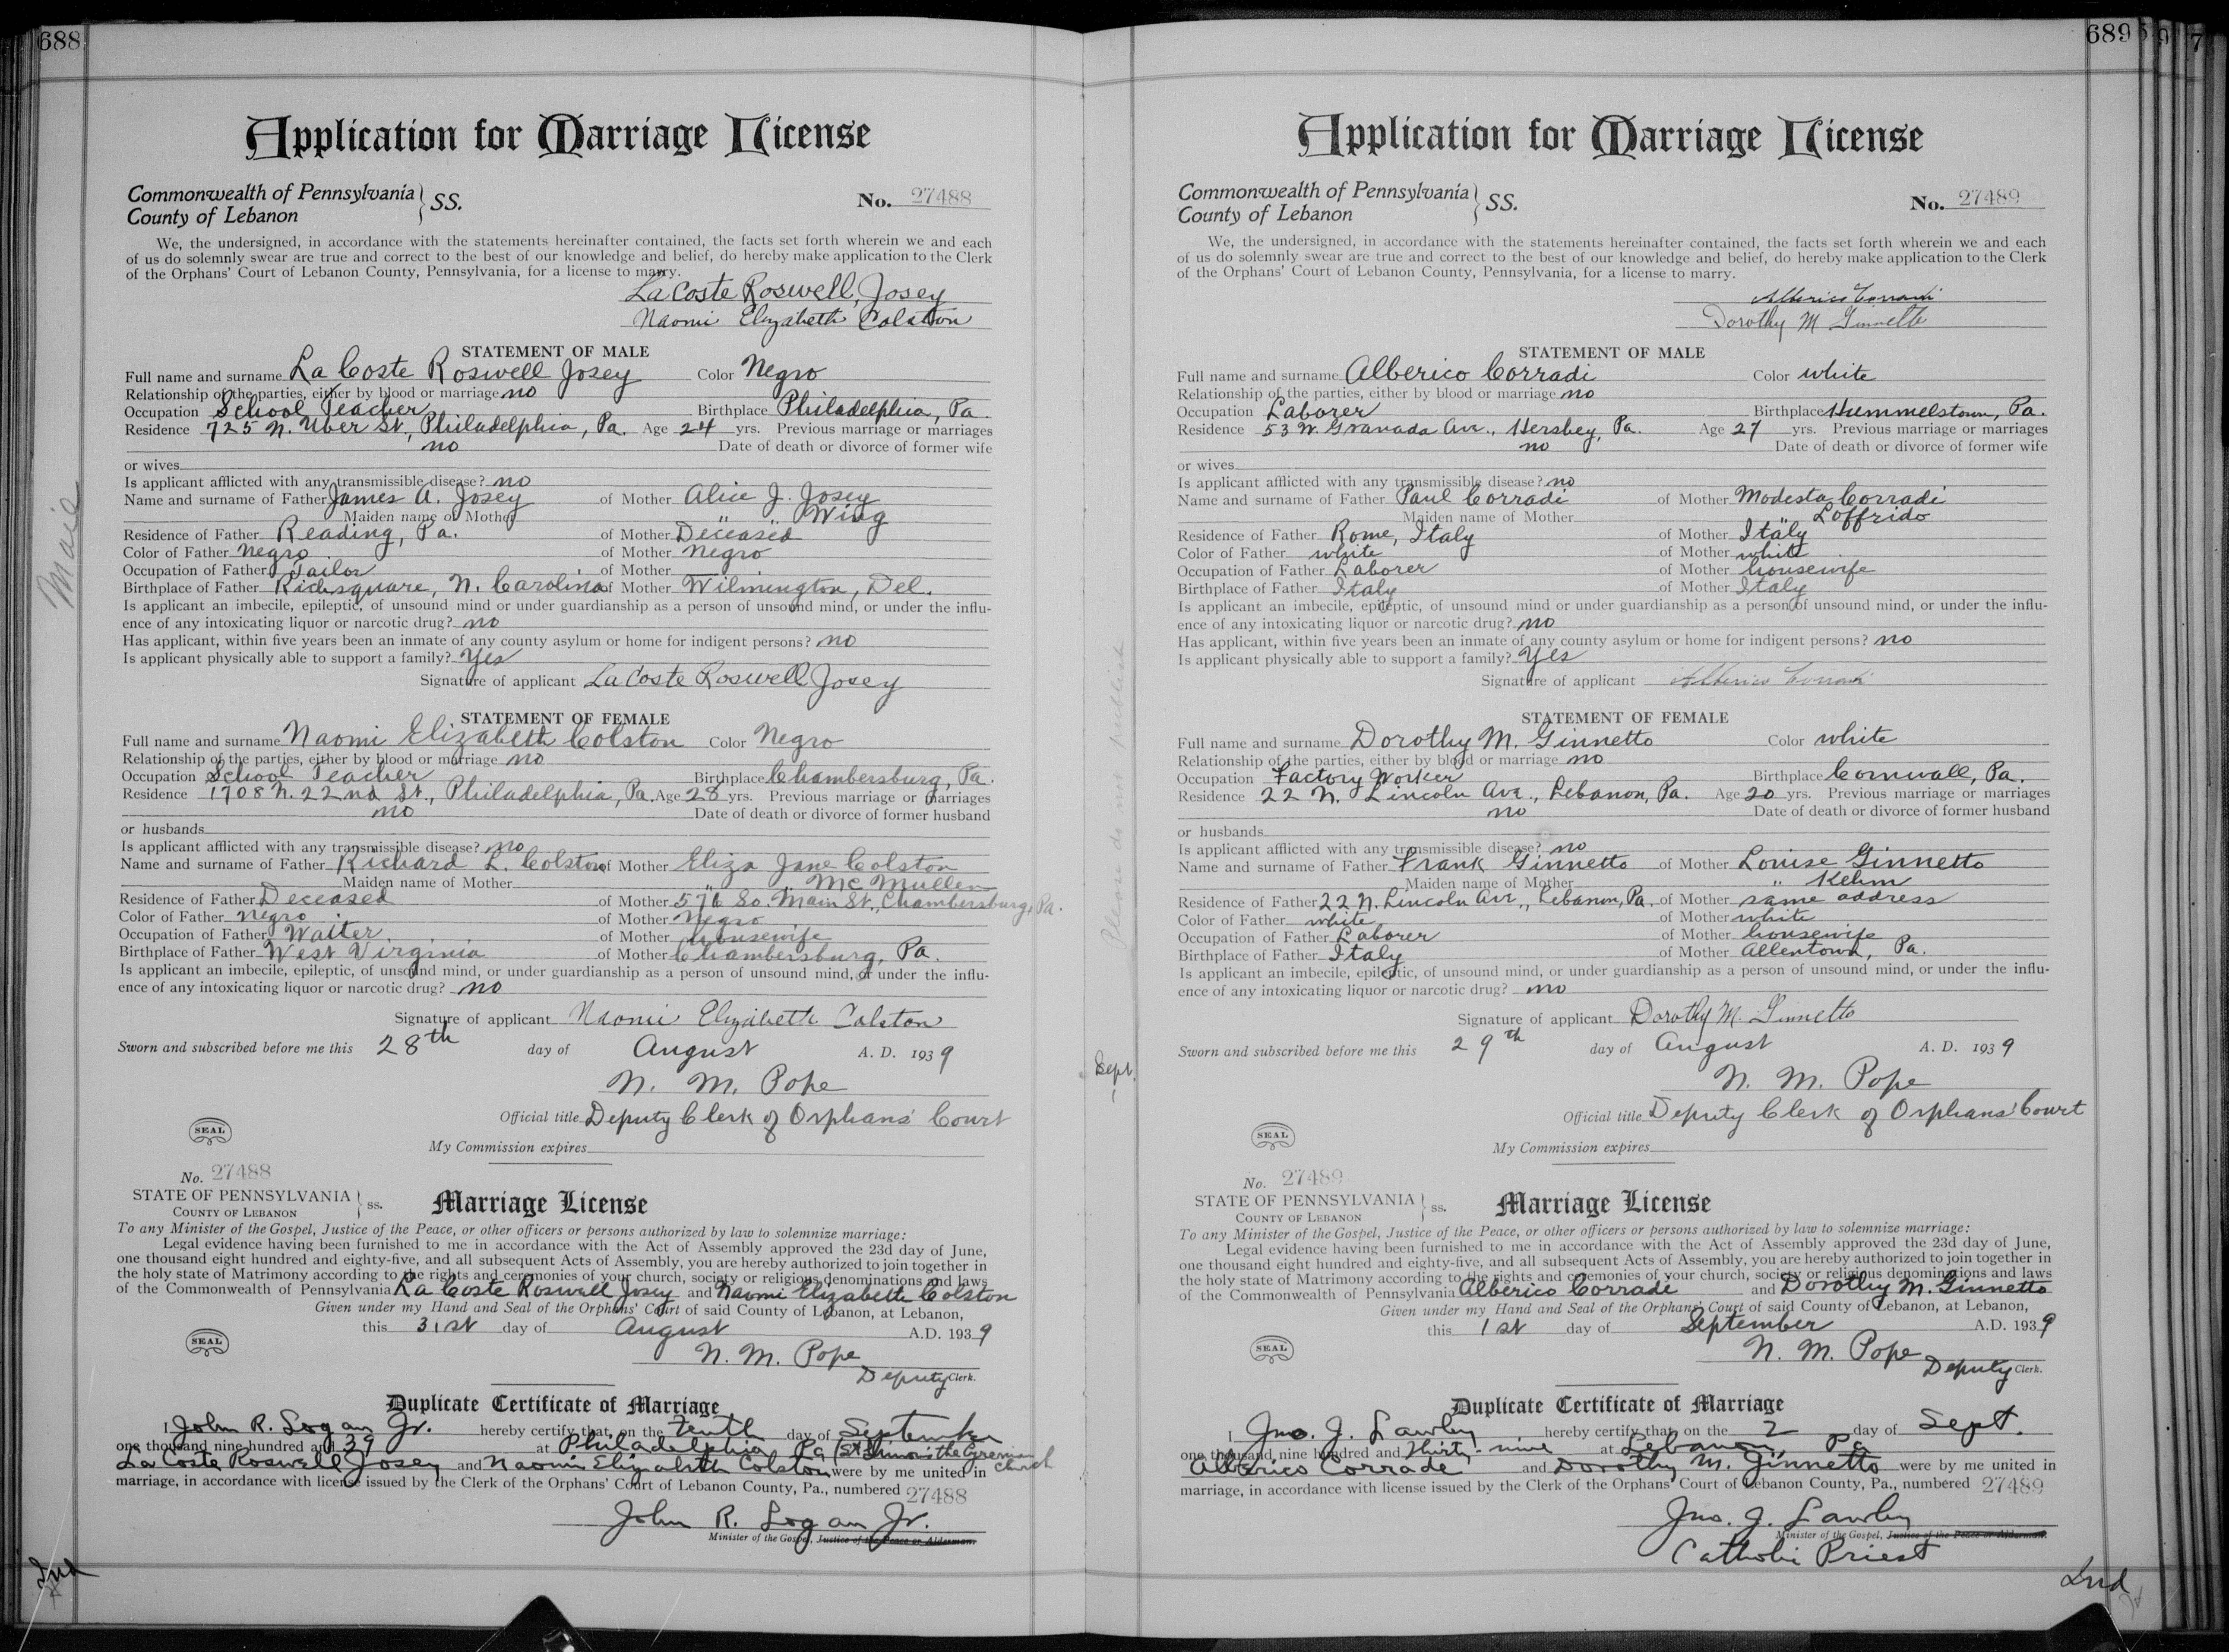 688
Application for Marriage License
Commonwealth of Pennsylvania
County of Lebanon
SS.
No. 27488
We, the undersigned, in accordance with the statements hereinafter contained, the facts set forth wherein we and each
of us do solemnly swear are true and correct to the best of our knowledge and belief, do hereby make application to the Clerk
of the Orphans' Court of Lebanon County, Pennsylvania, for a license to marry.
LaCoste Roswell Josey
Naomi Elizabeth Colston
STATEMENT OF MALE
Full name and surname La Coste Roswell Josey Color Negro
Relationship of the parties, either by blood or marriage no
Occupation School Teacher Birthplace Philadelphia, Pa.
Residence 725 N. Uber St., Philadelphia, Pa. Age 24 yrs. Previous marriage or marriages
no Date of death or divorce of former wife
or wives
Is applicant afflicted with any transmissible disease? no
Name and surname of Father James A. Josey of Mother Alice J. Josey
Maiden name of Mother " " Wing
Residence of Father Reading, Pa. of Mother Deceased
Color of Father negro of Mother negro
Occupation of Father Tailor of Mother
Birthplace of Father Richsquare, N. Carolina of Mother Wilmington, Del.
Is applicant an imbecile, epileptic, of unsound mind or under guardianship as a person of unsound mind, or under the influ-
ence of any intoxicating liquor or narcotic drug? no
Has applicant, within five years been an inmate of any county asylum or home for indigent persons? no
Is applicant physically able to support a family? Yes
Signature of applicant LaCoste Roswell Josey
STATEMENT OF FEMALE
Full name and surname Naomi Elizabeth Colston Color Negro
Relationship of the parties, either by blood or marriage no
Occupation School Teacher Birthplace Chambersburg, Pa.
Residence 1708 N. 22nd St., Philadelphia, Pa. Age 28 yrs. Previous marriage or marriages
no Date of death or divorce of former husband
or husbands
Is applicant afflicted with any transmissible disease? no
Name and surname of Father Richard L. Colston of Mother Eliza Jane Colston
Maiden name of Mother " " McMullen
Residence of Father Deceased of Mother So. Main St., Chambersburg, Pa.
Color of Father negro of Mother Negro
Occupation of Father Waiter of Mother housewife
Birthplace of Father West Virginia of Mother Chambersburg, Pa.
Is applicant an imbecile, epileptic, of unsound mind, or under guardianship as a person of unsound mind, or under the influ-
ence of any intoxicating liquor or narcotic drug? no
Signature of applicant Naomi Elizabeth Colston
Sworn and subscribed before me this 28th day of August A. D. 1939
N. M. Pope
Official title Deputy Clerk of Orphans' Court
SEAL
My Commission expires
No. 27488
STATE OF PENNSYLVANIA
COUNTY OF LEBANON
ss.
Marriage License
To any Minister of the Gospel, Justice of the Peace, or other officers or persons authorized by law to solemnize marriage:
Legal evidence having been furnished to me in accordance with the Act of Assembly approved the 23d day of June,
one thousand eight hundred and eighty-five, and all subsequent Acts of Assembly, you are hereby authorized to join together in
the holy state of Matrimony according to the rights and ceremonies of your church, society or religious denominations and laws
of the Commonwealth of Pennsylvania La Coste Roswell Josey and Naomi Elizabeth Colston
Given under my Hand and Seal of the Orphans' Court of said County of Lebanon, at Lebanon,
this 31st day of August A.D. 1939
SEAL
N. M. Pope
Deputy Clerk.
Duplicate Certificate of Marriage
I John R. Logan Jr. hereby certify that, on the tenth day of September
one thousand nine hundred and 39 at Philadelphia Pa (St. Simon the Cyrenian church
La Coste Roswell Josey and Naomi Elizabeth Colston were by me united in
marriage, in accordance with license issued by the Clerk of the Orphans' Court of Lebanon County, Pa., numbered 27488
John R. Logan Jr.
Minister of the Gospel, Justice of the Peace or Alderman.
689
Application for Marriage License
Commonwealth of Pennsylvania
County of Lebanon
SS.
No. 27489
We, the undersigned, in accordance with the statements hereinafter contained, the facts set forth wherein we and each
of us do solemnly swear are true and correct to the best of our knowledge and belief, do hereby make application to the Clerk
of the Orphans' Court of Lebanon County, Pennsylvania, for a license to marry.
Alberico Corradi
Dorothy M Ginnetto
STATEMENT OF MALE
Full name and surname Alberico Corradi Color white
Relationship of the parties, either by blood or marriage no
Occupation Laborer Birthplace Hummelstown, Pa.
Residence 53 W. Granada Ave., Hershey, Pa. Age 27 yrs. Previous marriage or marriages
no Date of death or divorce of former wife
or wives
Is applicant afflicted with any transmissible disease? no
Name and surname of Father Paul Corradi of Mother Modesta Corradi
Maiden name of Mother " Loffrido
Residence of Father Rome, Italy of Mother Italy
Color of Father white of Mother white
Occupation of Father Laborer of Mother housewife
Birthplace of Father Italy of Mother Italy
Is applicant an imbecile, epileptic, of unsound mind or under guardianship as a person of unsound mind, or under the influ-
ence of any intoxicating liquor or narcotic drug? no
Has applicant, within five years been an inmate of any county asylum or home for indigent persons? no
Is applicant physically able to support a family? Yes
Signature of applicant Alberico Corradi
STATEMENT OF FEMALE
Full name and surname Dorothy M. Ginnetto Color white
Relationship of the parties, either by blood or marriage no
Occupation Factory Worker Birthplace Cornwall, Pa.
Residence 22 N. Lincoln Ave., Lebanon, Pa. Age 20 yrs. Previous marriage or marriages
no Date of death or divorce of former husband
or husbands
Is applicant afflicted with any transmissible disease? no
Name and surname of Father Frank Ginnetto of Mother Louise Ginnetto
Maiden name of Mother " Kehm
Residence of Father 22 N. Lincoln Ave., Lebanon, Pa. of Mother same address
Color of Father white of Mother white
Occupation of Father Laborer of Mother housewife
Birthplace of Father Italy of Mother Allentown, Pa.
Is applicant an imbecile, epileptic, of unsound mind, or under guardianship as a person of unsound mind, or under the influ-
ence of any intoxicating liquor or narcotic drug? no
Signature of applicant Dorothy M. Ginnetto
Sworn and subscribed before me this 29th day of August A. D. 1939
N. M. Pope
Official title Deputy Clerk of Orphans' Court
SEAL
My Commission expires
No. 27489
STATE OF PENNSYLVANIA
COUNTY OF LEBANON
ss.
Marriage License
To any Minister of the Gospel, Justice of the Peace, or other officers or persons authorized by law to solemnize marriage:
Legal evidence having been furnished to me in accordance with the Act of Assembly approved the 23d day of June,
one thousand eight hundred and eighty-five, and all subsequent Acts of Assembly, you are hereby authorized to join together in
the holy state of Matrimony according to the rights and ceremonies of your church, society or religious denominations and laws
of the Commonwealth of Pennsylvania Alberico Corradi and Dorothy M. Ginnetto
Given under my Hand and Seal of the Orphans' Court of said County of Lebanon, at Lebanon,
this 1st day of September A.D. 1939
SEAL
N. M. Pope
Deputy Clerk.
Duplicate Certificate of Marriage
I Jno. J. Lawley hereby certify that on the 2 day of Sept.
one thousand, nine hundred and thirty-nine at Lebanon, Pa
Alberico Corrade and Dorothy M. Ginnetto were by me united in
marriage, in accordance with license issued by the Clerk of the Orphans' Court of Lebanon County, Pa., numbered 27489
Jno. J. Lawley
Minister of the Gospel, Justice of the Peace or Alderman.
Catholic Priest
Please do not publish
Sept.
Ind
Ind